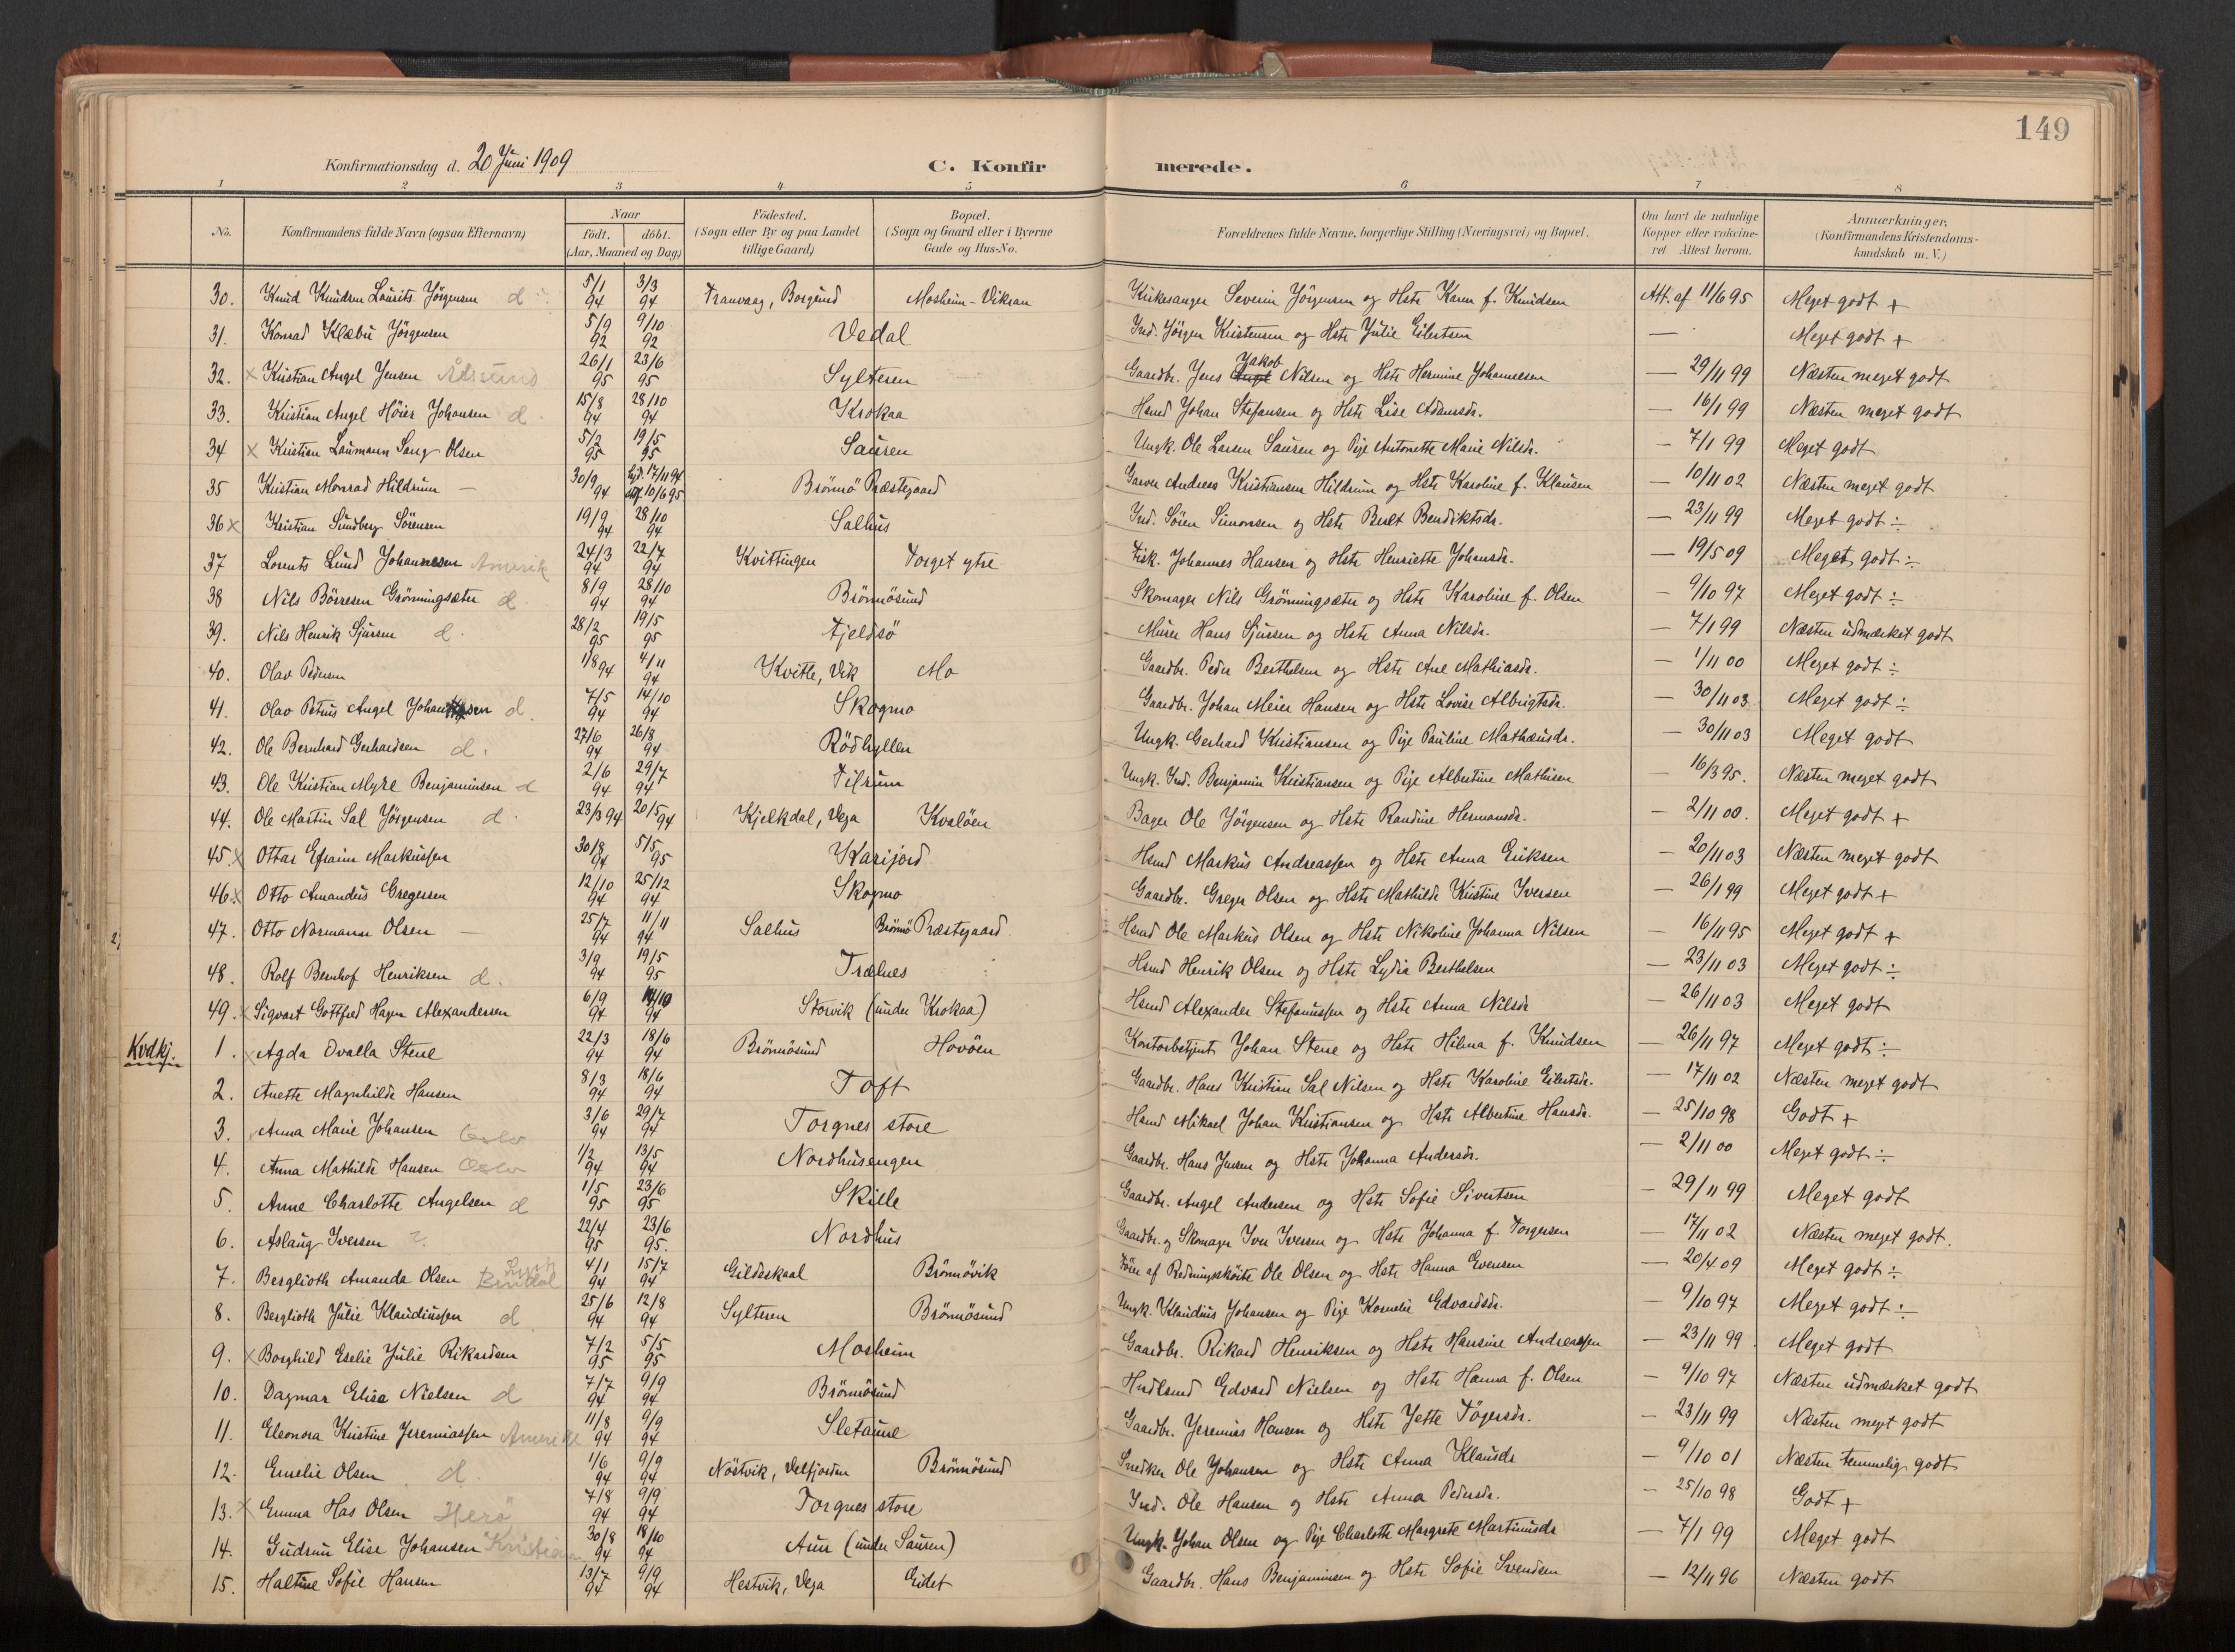 149
Konfirmationsdag d. 20 Juni 1909 C. Konfirmerede.
1 2 3 4 5 6 7 8
No. Konfirmandens fulde Navn (ogsaa Efternavn) Naar født. døbt. (Aar, Maaned og Dag) Födested. (Sogn eller By og paa Landet tillige Gaard) Bopæl. (Sogn og Gaard eller i Byerne Gade og Hus-No. Forældrenes fulde Navne, borgerlige Stilling (Næringsvei) og Bopæl. Om havt de naturlige Kopper eller vakcineret Attest herom. Anmærkninger, (Konfirmandens Kristendomskundskab m. V.)
30. Knud Knudsen Laurits Jörgensen d 5/1 94 3/3 94 Tranvaag, Borgund Mosheim-Vikran Kirkesanger Severin Jörgensen og Hstr Karen f. Knudsen Att. af 11/6 95 Meget godt +
31. Konrad Klæbu Jörgensen 5/9 92 9/10 92 Vedal Ind. Jörgen Kristensen og Hstr Julie Eilertsen — Meget godt +
32. x Kristian Angel Jensen 26/1 95 23/6 95 Sylteren Gaardbr. Jens Jakob Nilsen og Hstr Hermine Johannesen — 29/11 99 Næsten meget godt
33. Kristian Angel Höier Johansen d 15/8 94 28/10 94 Krokaa Hsmd Johan Stefansen og Hstr Lise Adamsdr. — 16/1 99 Næsten meget godt
34 x Kristian Laumann Sang Olsen 5/2 95 19/5 95 Sauren Ungk. Ole Larsen Sauren og Pige Antonette Marie Nilsdr. — 7/1 99 Meget godt
35 Kristian Monrad Hildrum — 30/9 94 hjd. 17/11 94 stf. 10/6 95 Brönnö Præstegaard Garver Andreas Kristiansen Hildrum og Hstr Karoline f. Klausen — 10/11 02 Næsten meget godt
36 x Kristian Sundberg Sörensen 19/9 94 28/10 94 Salhus Ind. Sören Simonsen og Hstr Berit Bendiktsdr. — 23/11 99 Meget godt ÷
37 Lorents Lund Johannesen Amerik 24/3 94 22/7 94 Kvittingen Torget ytre Fisk. Johannes Hansen og Hstr Henriette Johansdr. — 19/5 09 Meget godt ÷
38 Nils Börresen Grönningsæter d 8/9 94 28/10 94 Brönnösund Skomager Nils Grönningsæter og Hstr Karoline f. Olsen — 9/10 97 Meget godt ÷
39. Nils Henrik Sjursen d. 28/2 95 19/5 95 Tjeldsö Murer Hans Sjursen og Hstr Anna Nilsdr. — 7/1 99 Næsten udmærket godt
40. Olav Pedersen 1/8 94 4/11 94 Kvitle, Vik Mo Gaardbr. Peder Berthelsen og Hstr Ane Mathiasdr. — 1/11 00 Meget godt ÷
41. Olav Petrus Angel Johansen d. 7/5 94 14/10 94 Skogmo Gaardbr. Johan Meier Hansen og Hstr Lovise Albrigtsdr. — 30/11 03 Meget godt ÷
42. Ole Bernhard Gerhardsen d. 27/6 94 26/8 94 Rödhyllen Ungk. Gerhard Kristiansen og Pige Pauline Mathæusdr. — 30/11 03 Meget godt
43. Ole Kristian Myhre Benjaminsen d 2/6 94 29/7 94 Tilrum Ungk. Ind. Benjamin Kristiansen og Pige Albertine Mathisen — 16/3 95. Næsten meget godt
44. Ole Martin Sal Jörgensen d. 23/3 94 20/5 94 Kjelkdal, Vega Kvalöen Bager Ole Jörgensen og Hstr Randine Hermansdr. — 2/11 00. Meget godt +
45. x Ottar Efraim Markussen 30/8 94 5/5 95 Karijord Hsmd Markus Andreassen og Hstr Anna Eriksen — 20/11 03 Næsten meget godt
46 x Otto Amandus Gregersen 12/10 94 25/12 94 Skogmo Gaardbr. Greger Olsen og Hstr Mathilde Kristine Iversen — 26/1 99 Meget godt +
47. Otto Normann Olsen — 25/7 94 11/11 94 Salhus Brönnö Præstegaard. Hsmd Ole Markus Olsen og Hstr Nikoline Johanna Nilsen — 16/11 95 Meget godt +
48. Rolf Bernhof Henriksen d. 3/9 94 19/5 95 Trælnes Hsmd Henrik Olsen og Hstr Lydia Berthelsen — 23/11 03 Meget godt ÷
49. x Sigvart Gottfred Hagen Alexandersen 6/9 94 14/10 94 Storvik (under Krokaa) Hsmd Alexander Stefanussen og Hstr Anna Nilsdr — 26/11 03 Meget godt
Kvdkj.
1. x Agda Ovalla Stene 22/3 94 18/6 94 Brönnösund Havöen Kontorbetjent Johan Stene og Hstr Hilma f. Knudsen — 26/11 97 Meget godt ÷
2. Anette Magnhilde Hansen 8/3 94 18/6 94 Toft Gaardbr. Hans Kristian Sal Nilsen og Hstr Karoline Eilertsdr. — 17/11 02 Næsten meget godt
3. Anna Marie Johansen Oslo 3/6 94 29/7 94 Torgnes store Hsmd Mikael Johan Kristiansen og Hstr Albertine Hansdr. — 25/10 98 Godt +
4. Anna Mathilde Hansen Oslo 1/2 94 13/5 94 Nordhusengen Gaardbr. Hans Jensen og Hstr Johanna Andersdr. — 2/11 00 Meget godt ÷
5. Anne Charlotte Angelsen d 1/5 95 23/6 95 Skille Gaardbr. Angel Andersen og Hstr Sofie Sivertsen — 29/11 99 Meget godt
6. Aslaug Iversen ? 22/4 95 23/6 95. Nordhus Gaardbr. og Skomager Iver Iversen og Hstr Johanna f. Torgersen — 17/11 02 Næsten meget godt.
7. Berglioth Amanda Olsen Bindal 4/1 94 15/7 94 Gildeskaal Brönnövik Förer af Redningsköite Ole Olsen og Hstr Hanna Evensen — 20/4 09 Meget godt ÷
8. Berglioth Julie Klaudiussen d 25/6 94 12/8 94 Sylteren Brönnösund Ungk. Klaudius Johansen og Pige Kornelie Edvardsdr. — 9/10 97 Meget godt ÷
9. x Borghild Eselie Julie Rikardsen 7/2 95 5/5 95 Mosheim Gaardbr. Rikard Henriksen og Hstr Hansine Andreassen — 23/11 99 Meget godt
10. Dagmar Elisa Nielsen d 7/7 94 9/9 94 Brönnösund Hndlsmd Edvard Nielsen og Hstr Hanna f. Olsen — 9/10 97 Næsten udmærket godt
11. Eleonora Kristine Jeremiassen Amerika 11/8 94 9/9 94 Sletaune Gaardbr. Jeremias Hansen og Hstr Jette Tögersdr. — 23/11 99 Næsten meget godt
12. Emelie Olsen d. 1/6 94 9/9 94 Nöstvik, Velfjorden Brönnösund Snedker Ole Johansen og Hstr Anna Klausdr — 9/10 01 Næsten temmelig godt
13. x Emma Has Olsen Herö 7/8 94 9/9 94 Torgnes store Ind. Ole Hansen og Hstr Anna Pedersdr. — 25/10 98 Godt +
14. Gudrun Elise Johansen 30/8 94 18/10 94 Aun (under Sauren) Ungk. Johan Olsen og Pige Charlotte Margrete Martinusdr — 7/1 99 Meget godt
15. Haltine Sofie Hansen 13/7 94 9/9 94 Hestvik, Vega Eidet Gaardbr. Hans Benjaminsen og Hstr Sofie Svendsen — 12/11 96 Næsten godt